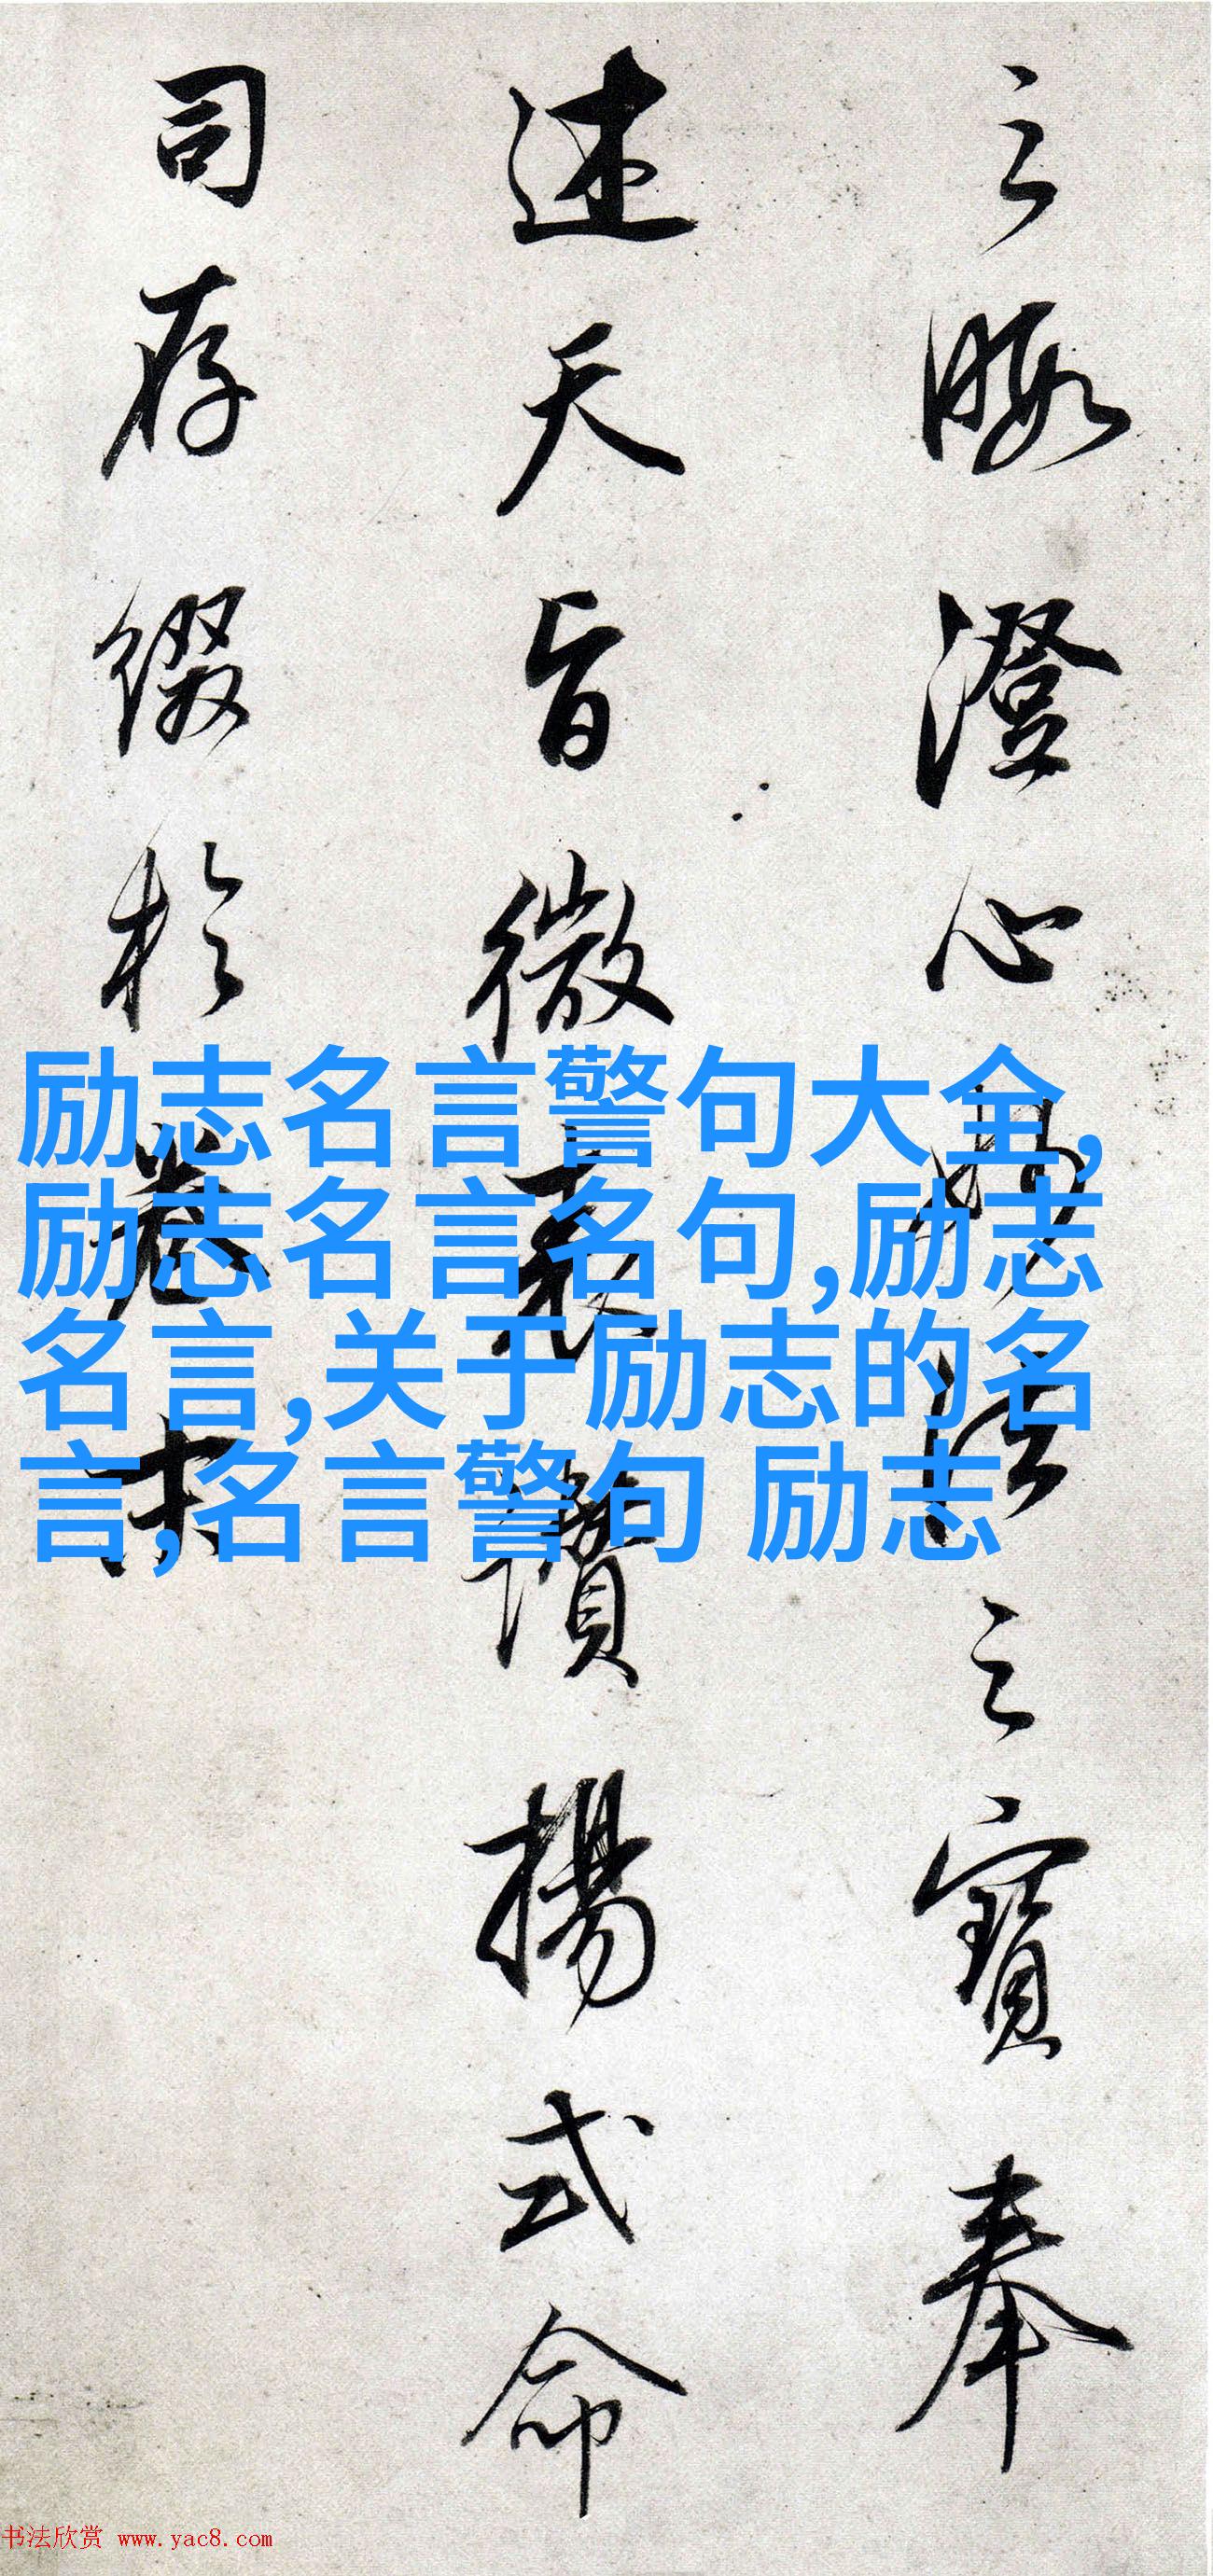 之暇澄心
之寶奉
述天旨微表讚揚式命
司存缀於卷末
励志名言警句大全,
励志名言名句,励志
名言,关于励志的名
言,名言警句 励志
书法欣赏 www.yac8.com